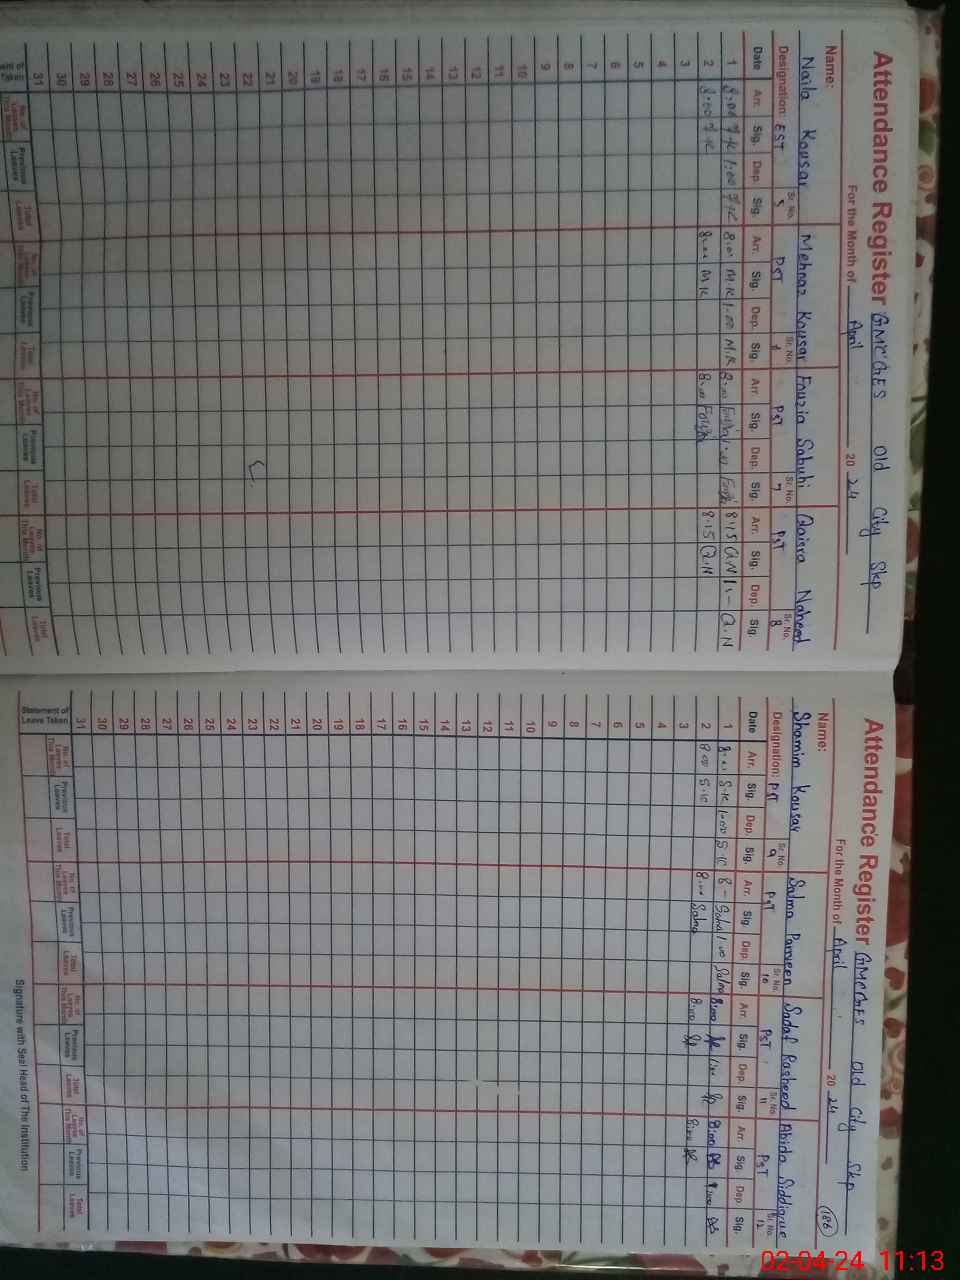 Attendance Register GMCGES Old City Skp
For the Month of April 20 24
Name: Naila Kousar Mehnaz Kousar Fouzia Sabuhi Qaisra Naheed
Designation: EST Sr. No. 5 PST Sr. No. PST Sr. No. 7 PST Sr. No. 8
Date Arr. Sig. Dep. Sig. Arr. Sig. Dep. Sig. Arr. Sig. Dep. Sig. Arr. Sig. Dep. Sig.
1 8:00 1:00 8:00 M.K 1:00 M.K 8:00 8:15 Q.N 1- Q.N
2 8:00 8:00 M.K 8:00 8:15 Q.N
3
4
5
6
7
8
9
10
11
12
13
14
15
16
17
18
19
20
21
22
23
24
25
26
27
28
29
30
31
No. of Leaves This Month Previous Leaves Total Leaves No. of Leaves This Month Previous Leaves Total Leaves No. of Leaves This Month Previous Leaves Total Leaves No. of Leaves This Month Previous Leaves Total Leaves
Attendance Register GMCGES Old City Skp
For the Month of April 20 24
186
Name: Shamim Kousar Salma Parveen Sadaf Rasheed Abida Siddique
Designation: PST Sr. No. 9 PST Sr. No. 10 PST Sr. No. 11 PST Sr. No. 12
Date Arr. Sig. Dep. Sig. Arr. Sig. Dep. Sig. Arr. Sig. Dep. Sig. Arr. Sig. Dep. Sig.
1 8:00 S.K 1:00 S.K 8- Salma 1:00 Salma 8:00 1:00 8:00 1:00
2 8:00 S.K 8:00 Salma 8:00 8:00
3
4
5
6
7
8
9
10
11
12
13
14
15
16
17
18
19
20
21
22
23
24
25
26
27
28
29
30
31
Statement of Leave Taken No. of Leaves This Month Previous Leaves Total Leaves No. of Leaves This Month Previous Leaves Total Leaves No. of Leaves This Month Previous Leaves Total Leaves No. of Leaves This Month Previous Leaves Total Leaves
Signature with Seal Head of The Institution
02-04-24 11:13